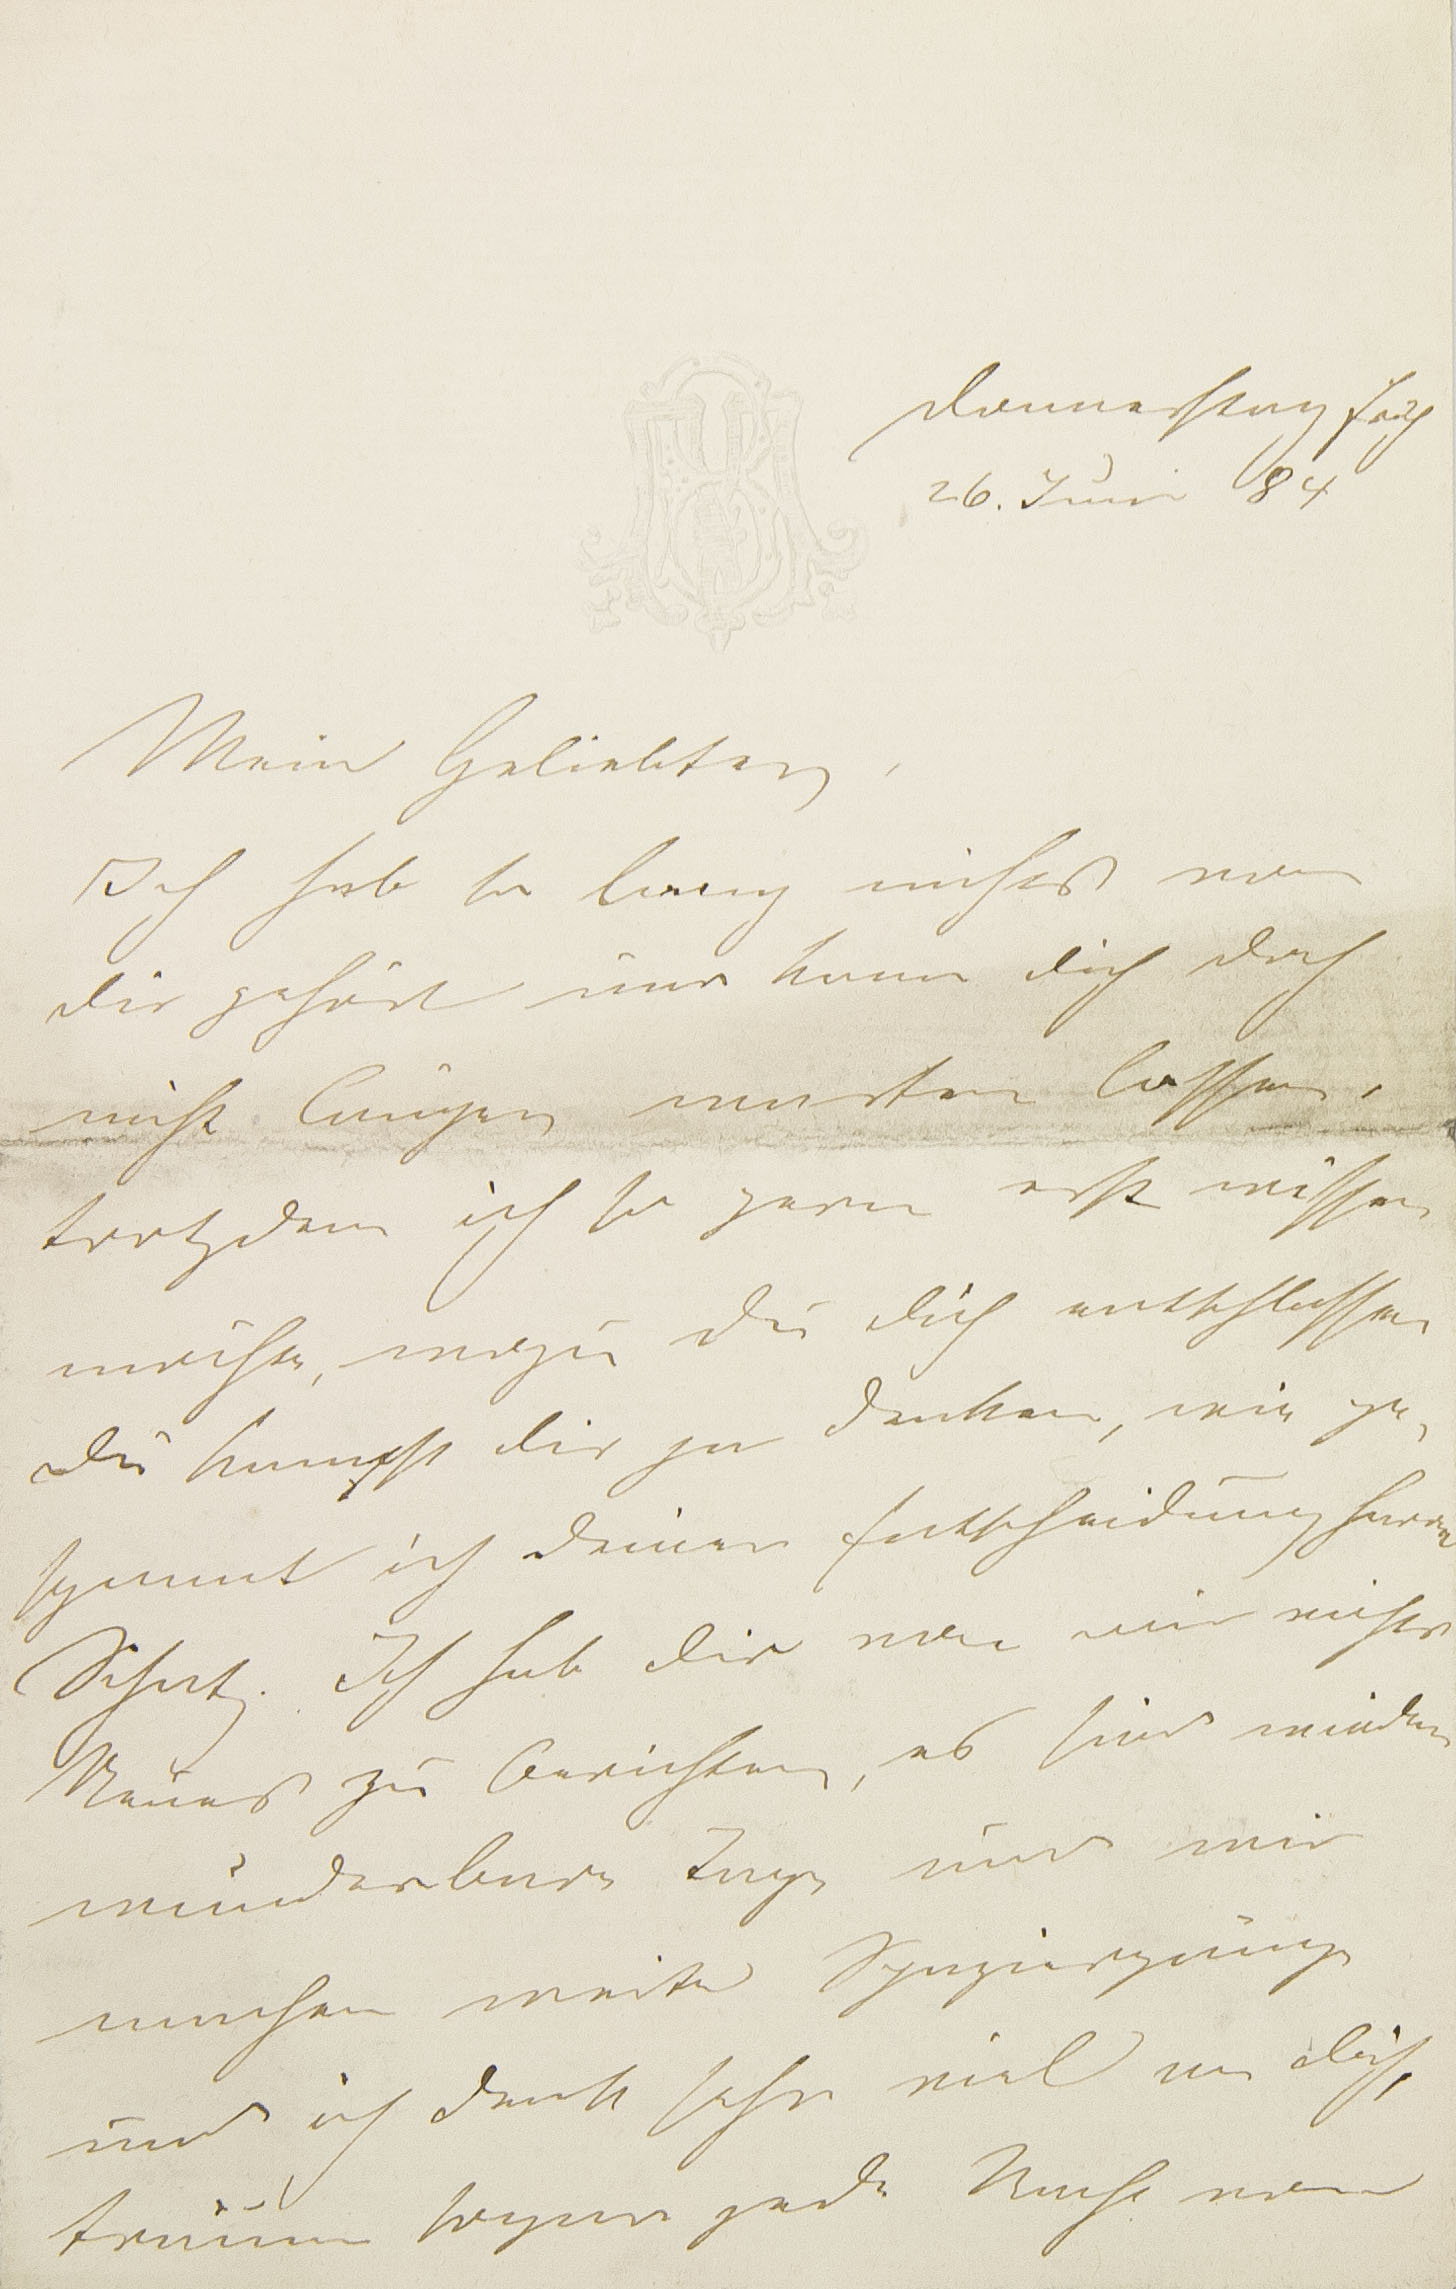 Donnerstag früh
26. Juni 84
Mein Geliebter,
Ich hab so lang nichts von
dir gehört und kann dich doch
nicht länger warten lassen,
trotzdem ich so gern erst wissen
möchte, wozu du dich entschlossen
du kannst dir ja denken, wie ge-
spannt ich deiner Entscheidung harre
Schatz. Ich hab dir von mir nichts
Neues zu berichten, es sind wieder
wunderbare Tage und wir
machen weite Spaziergänge
und ich denk sehr viel an dich,
träume sogar jede Nacht von